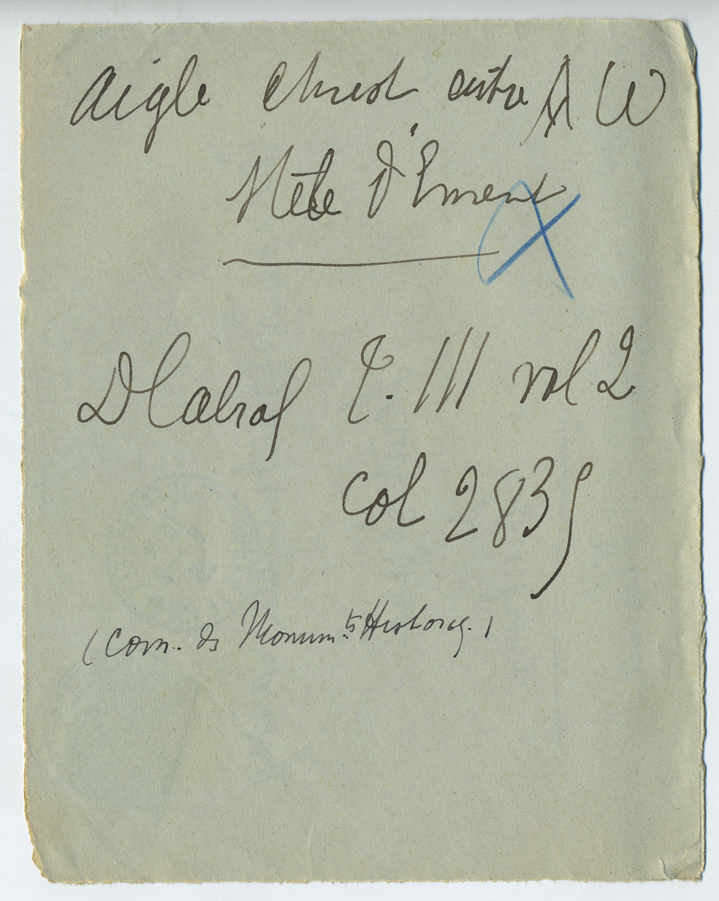 Aigle Christ entre A W
Stèle d'Erment
D Cabrol T. III vol 2
col 2835
(Com. ds Monumts Historiq.)